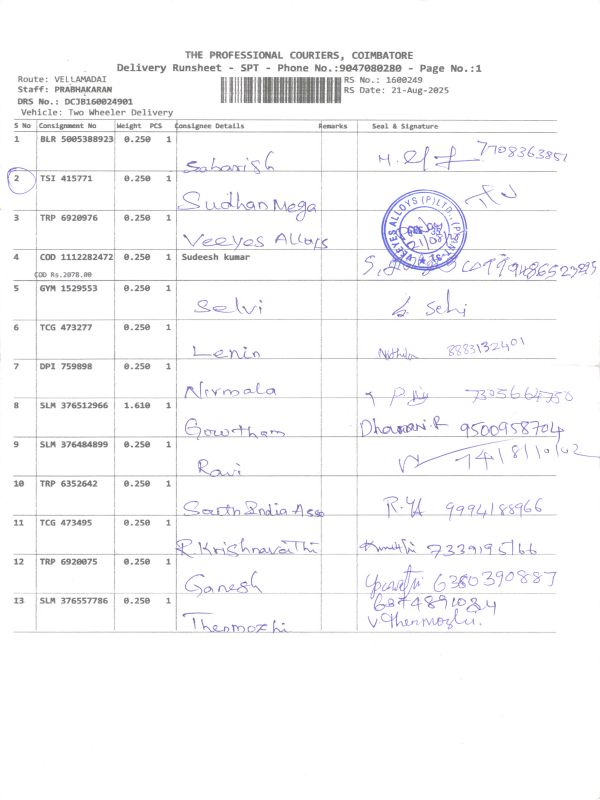 THE PROFESSIONAL COURIERS, COIMBATORE
Delivery Runsheet - SPT - Phone No.:9047080280 - Page No.:1
Route: VELLAMADAI RS No.: 1600249
Staff: PRABHAKARAN RS Date: 21-Aug-2025
DRS No.: DCJB160024901
Vehicle: Two Wheeler Delivery
S No Consignment No Weight PCS Consignee Details Remarks Seal & Signature
1 BLR 5005388923 0.250 1
Sabarish 7708363851
2 TSI 415771 0.250 1
Sudhan Mega
VEEYES ALLOYS (P) LTD.,
3 TRP 6920976 0.250 1
Veeyes Alloys
4 COD 1112282472 0.250 1 Sudeesh kumar
COD Rs.2078.00
5 GYM 1529553 0.250 1
Selvi
6 TCG 473277 0.250 1
Lenin 8883132401
7 DPI 759898 0.250 1
Nirmala 7305664750
8 SLM 376512966 1.610 1
Gowtham Dharani.R 9500958704
9 SLM 376484899 0.250 1
Ravi
10 TRP 6352642 0.250 1
South India Asso 9994188966
11 TCG 473495 0.250 1
R Krishnavathi 7339195166
12 TRP 6920075 0.250 1
Ganesh 6380390887
13 SLM 376557786 0.250 1
6374891084
Thenmozhi V. Thenmozhi.